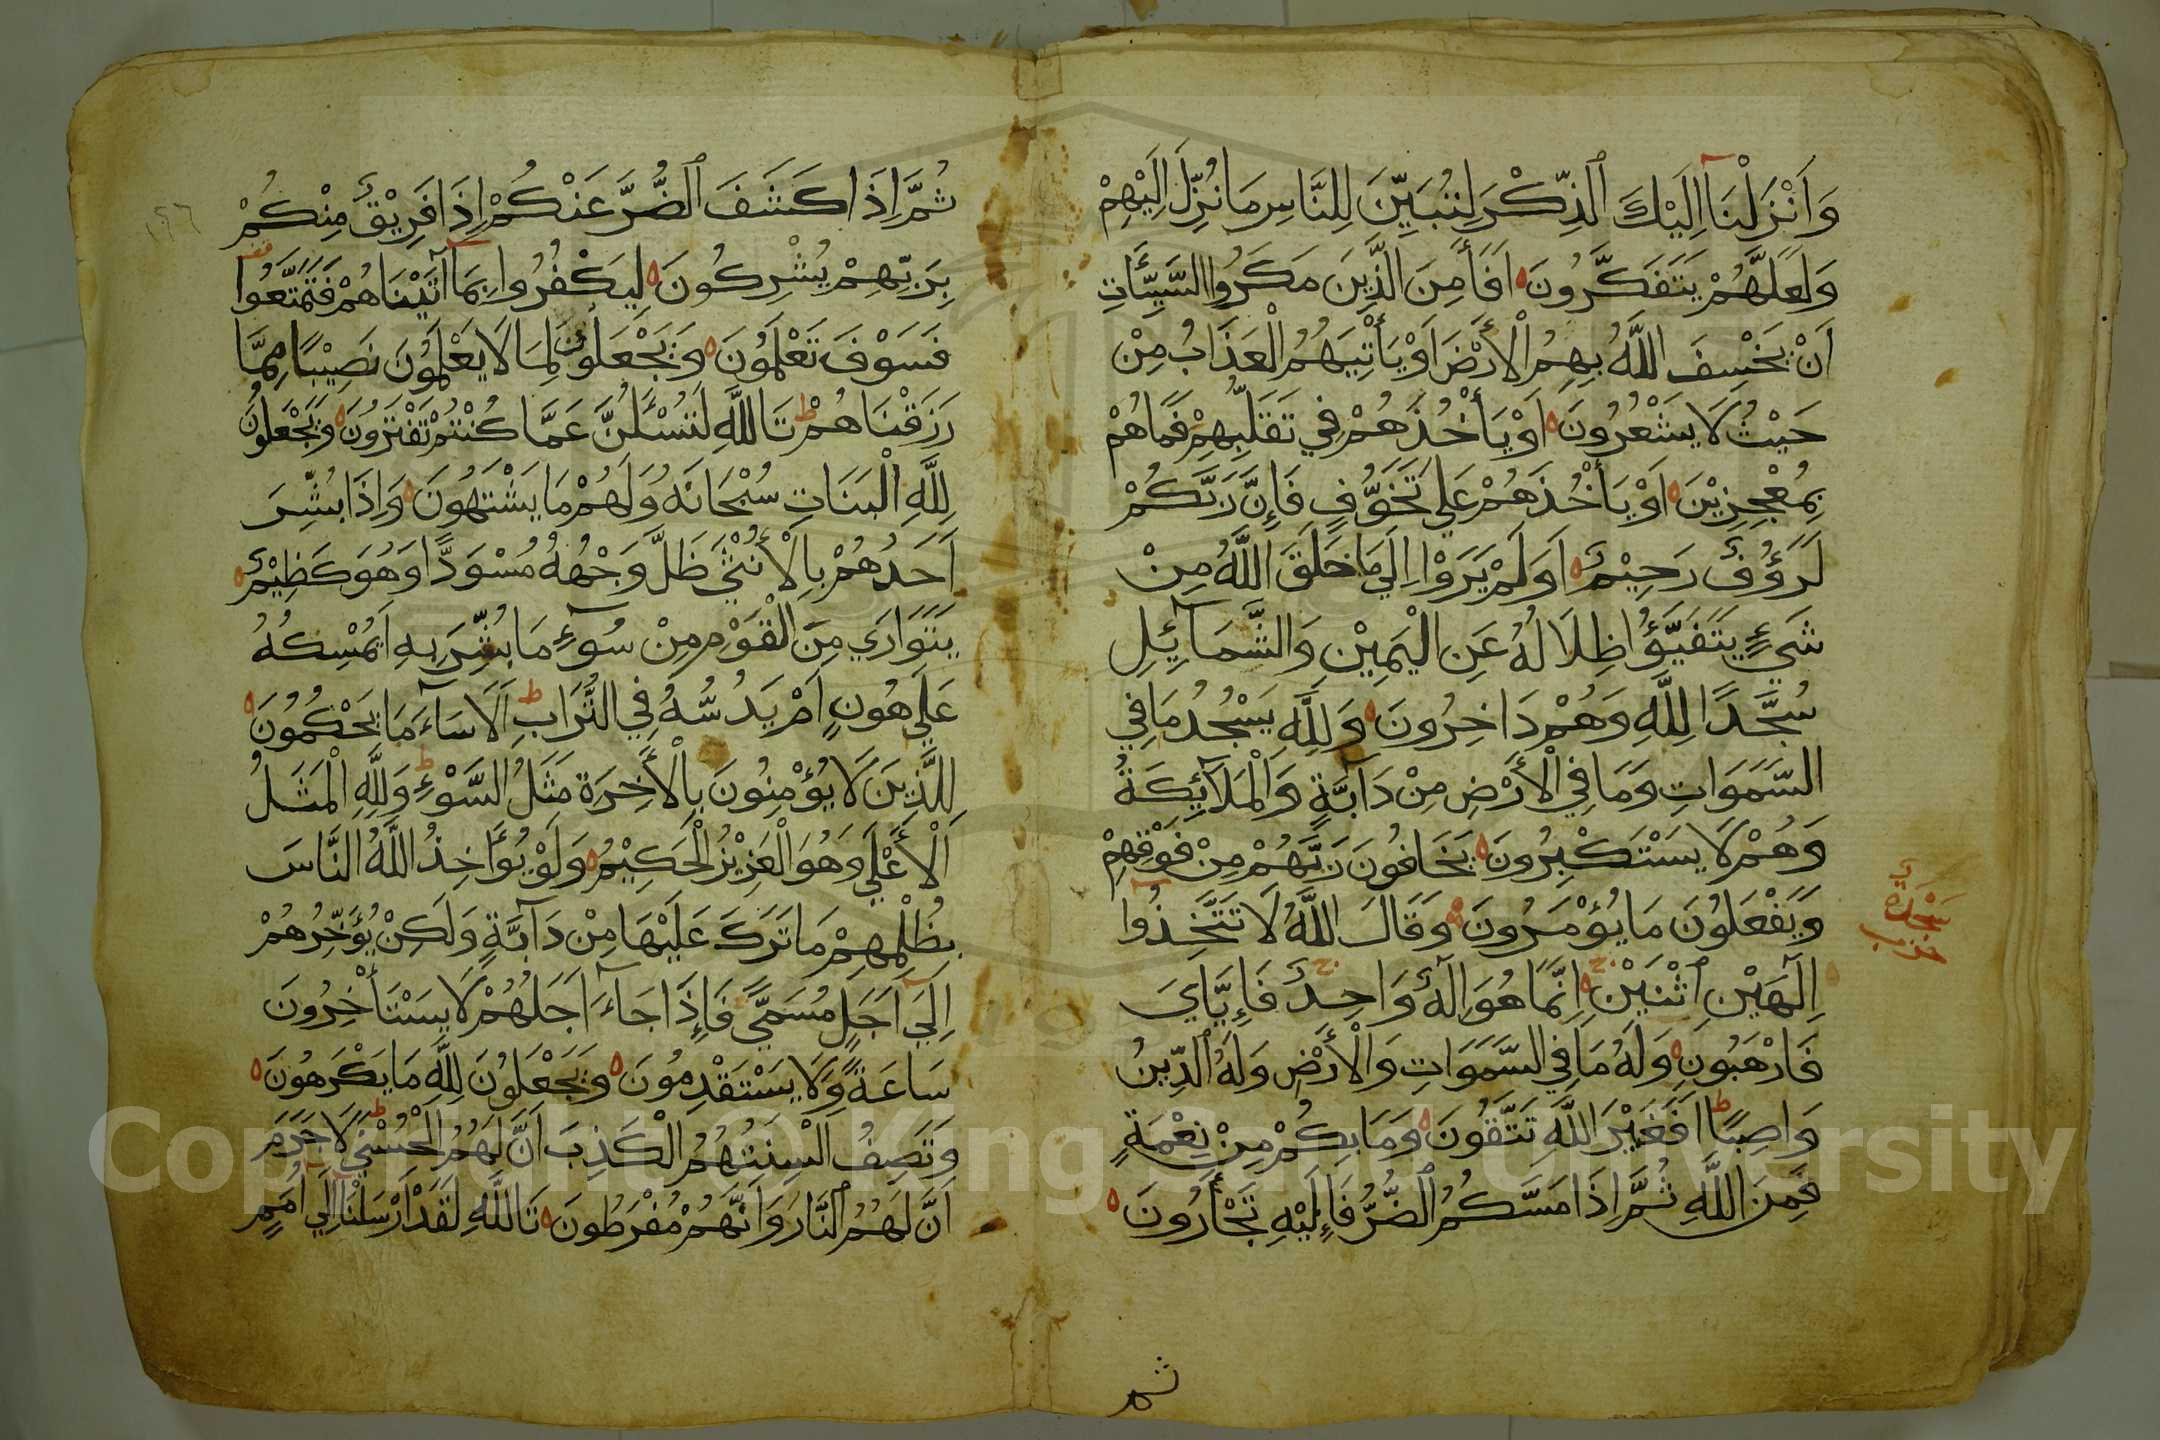 وَاَنْزَلْنَا اِلَيْكَ الذِّكْرَ لِتُبَيِّنَ لِلنَّاسِ مَا نُزِّلَ اِلَيْهِمْ
وَلَعَلَّهُمْ يَتَفَكَّرُونَ اَفَاَمِنَ الَّذِينَ مَكَرُوا السَّيِّئَاتِ
اَنْ يَخْسِفَ اللَّهُ بِهِمُ الْأَرْضَ اَوْ يَأْتِيَهُمُ الْعَذَابُ مِنْ
حَيْثُ لَا يَشْعُرُونَ اَوْ يَأْخُذَهُمْ فِي تَقَلُّبِهِمْ فَمَا هُمْ
بِمُعْجِزِيْنَ اَوْ يَأْخُذَهُمْ عَلَي تَخَوُّفٍ فَإِنَّ رَبَّكُمْ
لَرَؤُفٌ رَحِيْمٌ اَوَلَمْ يَرَوْا اِلَي مَا خَلَقَ اللَّهُ مِنْ
شَيْءٍ يَتَفَيَّؤُا ظِلَالُهُ عَنِ الْيَمِيْنِ وَالشَّمَآئِلِ
سُجَّدًا لِلَّهِ وَهُمْ دَاخِرُونَ وَلِلَّهِ يَسْجُدُ مَا فِي
السَّمَوَاتِ وَمَا فِي الْأَرْضِ مِنْ دَآبَّةٍ وَالْمَلَآئِكَةُ
وَهُمْ لَا يَسْتَكْبِرُونَ يَخَافُونَ رَبَّهُمْ مِنْ فَوْقِهِمْ
وَيَفْعَلُونَ مَا يُؤْمَرُونَ وَقَالَ اللَّهُ لَا تَتَّخِذُوا
اِلَهَيْنِ اثْنَيْنِ اِنَّمَا هُوَ اِلَهٌ وَاحِدٌ فَإِيَّايَ
فَارْهَبُونِ وَلَهُ مَا فِي السَّمَوَاتِ وَالْأَرْضِ وَلَهُ الدِّينُ
وَاصِبًا اَفَغَيْرَ اللَّهِ تَتَّقُونَ وَمَا بِكُمْ مِنْ نِعْمَةٍ
فَمِنَ اللَّهِ ثُمَّ اِذَا مَسَّكُمُ الضُّرُّ فَإِلَيْهِ تَجْأَرُونَ
ثم
سجدة
حزب
ثُمَّ اِذَا كَشَفَ الضُّرَّ عَنْكُمْ اِذَا فَرِيْقٌ مِنْكُمْ
بِرَبِّهِمْ يُشْرِكُونَ لِيَكْفُرُوا بِمَا آتَيْنَاهُمْ فَتَمَتَّعُوا
فَسَوْفَ تَعْلَمُونَ وَيَجْعَلُونَ لِمَا لَا يَعْلَمُونَ نَصِيْبًا مِمَّا
رَزَقْنَاهُمْ تَاللَّهِ لَتُسْئَلُنَّ عَمَّا كُنْتُمْ تَفْتَرُونَ وَيَجْعَلُونَ
لِلَّهِ الْبَنَاتِ سُبْحَانَهُ وَلَهُمْ مَا يَشْتَهُونَ وَاِذَا بُشِّرَ
اَحَدُهُمْ بِالْأُنْثَي ظَلَّ وَجْهُهُ مُسْوَدًّا وَهُوَ كَظِيْمٌ
يَتَوَارَي مِنَ الْقَوْمِ مِنْ سُوءِ مَا بُشِّرَ بِهِ اَيُمْسِكُهُ
عَلَي هُونٍ اَمْ يَدُسُّهُ فِي التُّرَابِ اَلَا سَآءَ مَا يَحْكُمُونَ
لِلَّذِيْنَ لَا يُؤْمِنُونَ بِالْأَخِرَةِ مَثَلُ السَّوْءِ وَلِلَّهِ الْمَثَلُ
الْأَعْلَي وَهُوَ الْعَزِيْزُ الْحَكِيْمُ وَلَوْ يُؤَاخِذُ اللَّهُ النَّاسَ
بِظُلْمِهِمْ مَا تَرَكَ عَلَيْهَا مِنْ دَآبَّةٍ وَلَكِنْ يُؤَخِّرُهُمْ
اِلَي اَجَلٍ مُسَمًّي فَإِذَا جَآءَ اَجَلُهُمْ لَا يَسْتَأْخِرُونَ
سَاعَةً وَلَا يَسْتَقْدِمُونَ وَيَجْعَلُونَ لِلَّهِ مَا يَكْرَهُونَ
وَتَصِفُ اَلْسِنَتُهُمُ الْكَذِبَ اَنَّ لَهُمُ الْحُسْنَي لَا جَرَمَ
اَنَّ لَهُمُ النَّارَ وَاَنَّهُمْ مُفْرَطُونَ تَاللَّهِ لَقَدْ اَرْسَلْنَا اِلَي اُمَمٍ
Copyright © King Saud University